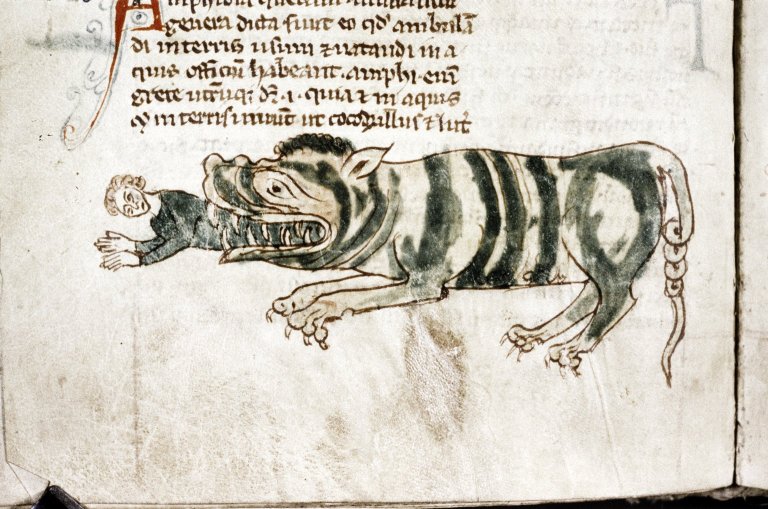 A
genera dicta sunt eo qd' ambulā
di in terris usum ⁊ natandi in a
quis officiū habeant. amphi. enī
grece utruq; dr̄ .i. quia ⁊ in aquis
in terris uiuunt ut cocodrillus ⁊